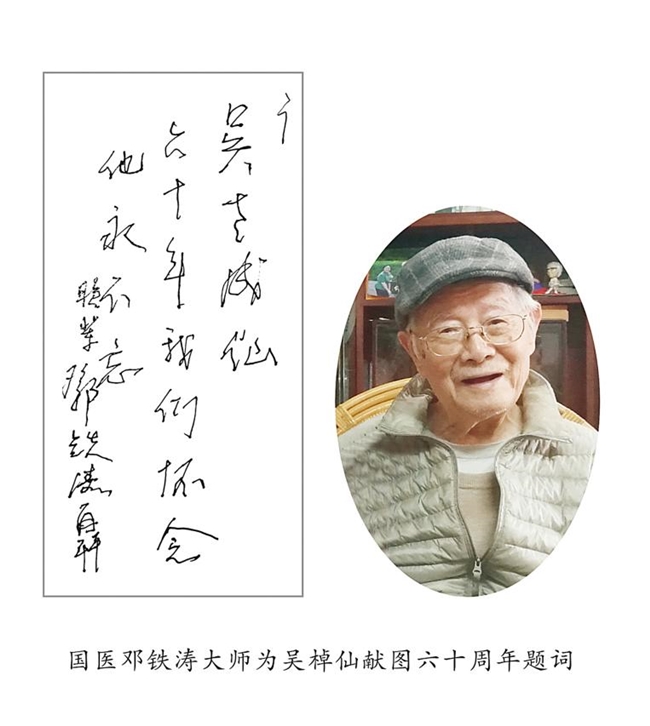 吴老成仙
六十年我们怀念
他永不忘
鄧铁涛
国医邓铁涛大师为吴棹仙献图六十周年题词